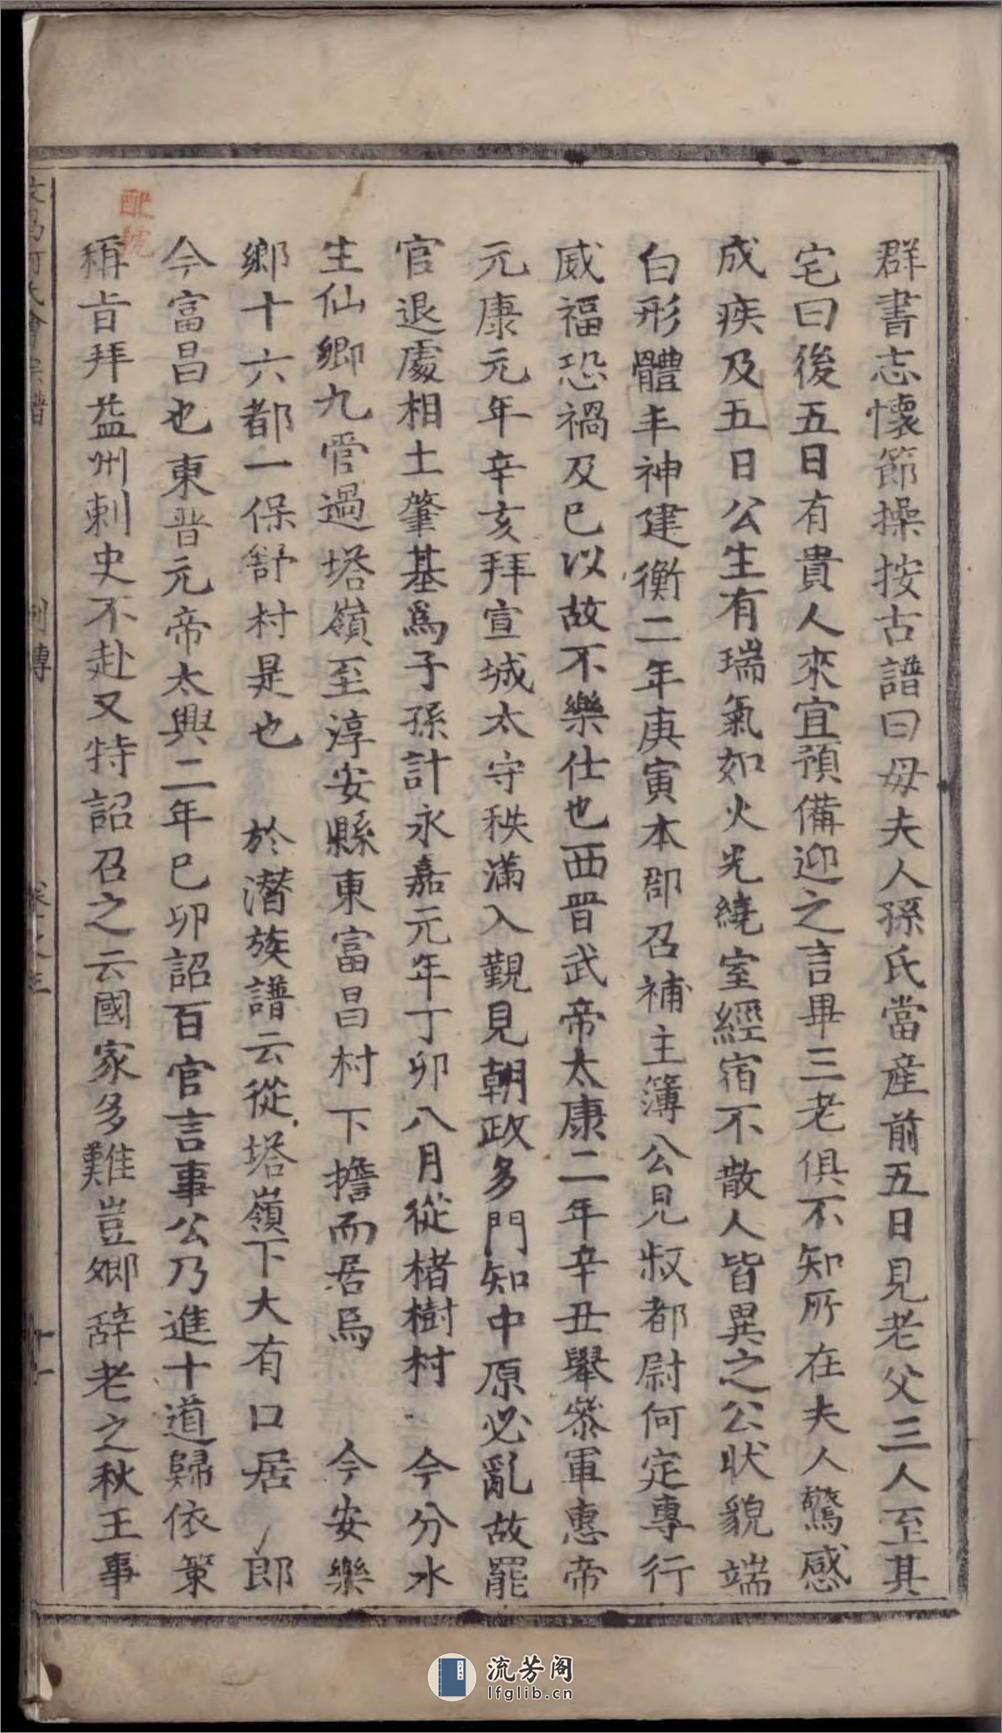 群書志懷節操按古譜曰母夫人孫氏當産前五日見老父三人至其
宅曰後五日有貴人來宜預備迎之言畢三老俱不知所在夫人驚感
成疾及五日公生有瑞氣如火光繞室經宿不散人皆異之公狀貌端
白形體丰神建衡二年庚寅本郡召補主簿公見叔都尉何定專行
威福恐禍及已以故不樂仕也西晉武帝太康二年辛丑舉叅軍惠帝
元康元年辛亥拜宣城太守秩滿入覲見朝政多門知中原必亂故罷
官退處相土肇基爲子孫計永嘉元年丁卯八月從楮樹村 今分水
生仙鄉九管過塔嶺至淳安縣東富昌村下擔而居焉 今安樂
鄉十六都一保舒村是也 於潛族譜云從塔嶺下大有口居 郎
今富昌也東晋元帝太興二年巳卯詔百官言事公乃進十道歸依策
稱旨拜益州刺史不赴又特詔召之云國家多難豈卿辞老之秋王事
氏會宗譜 列傳 卷之三 十一
流芳阁
lfglib.cn